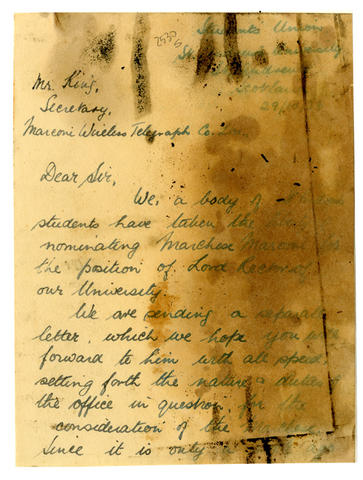 Students' Union
St.
Scotland
29/10/33
Mr. King,
Secretary,
Marconi Wireless Telegraph Co.
Dear Sir,
We, a body of
students have taken the
nominating Marchese Marconi for
the position of Lord Rector of
our University.
We are sending a separate
letter, which we hope you will
forward to him with all speed
setting forth the nature & duties of
the office in question for the
consideration of the Marchese.
Since it is only a